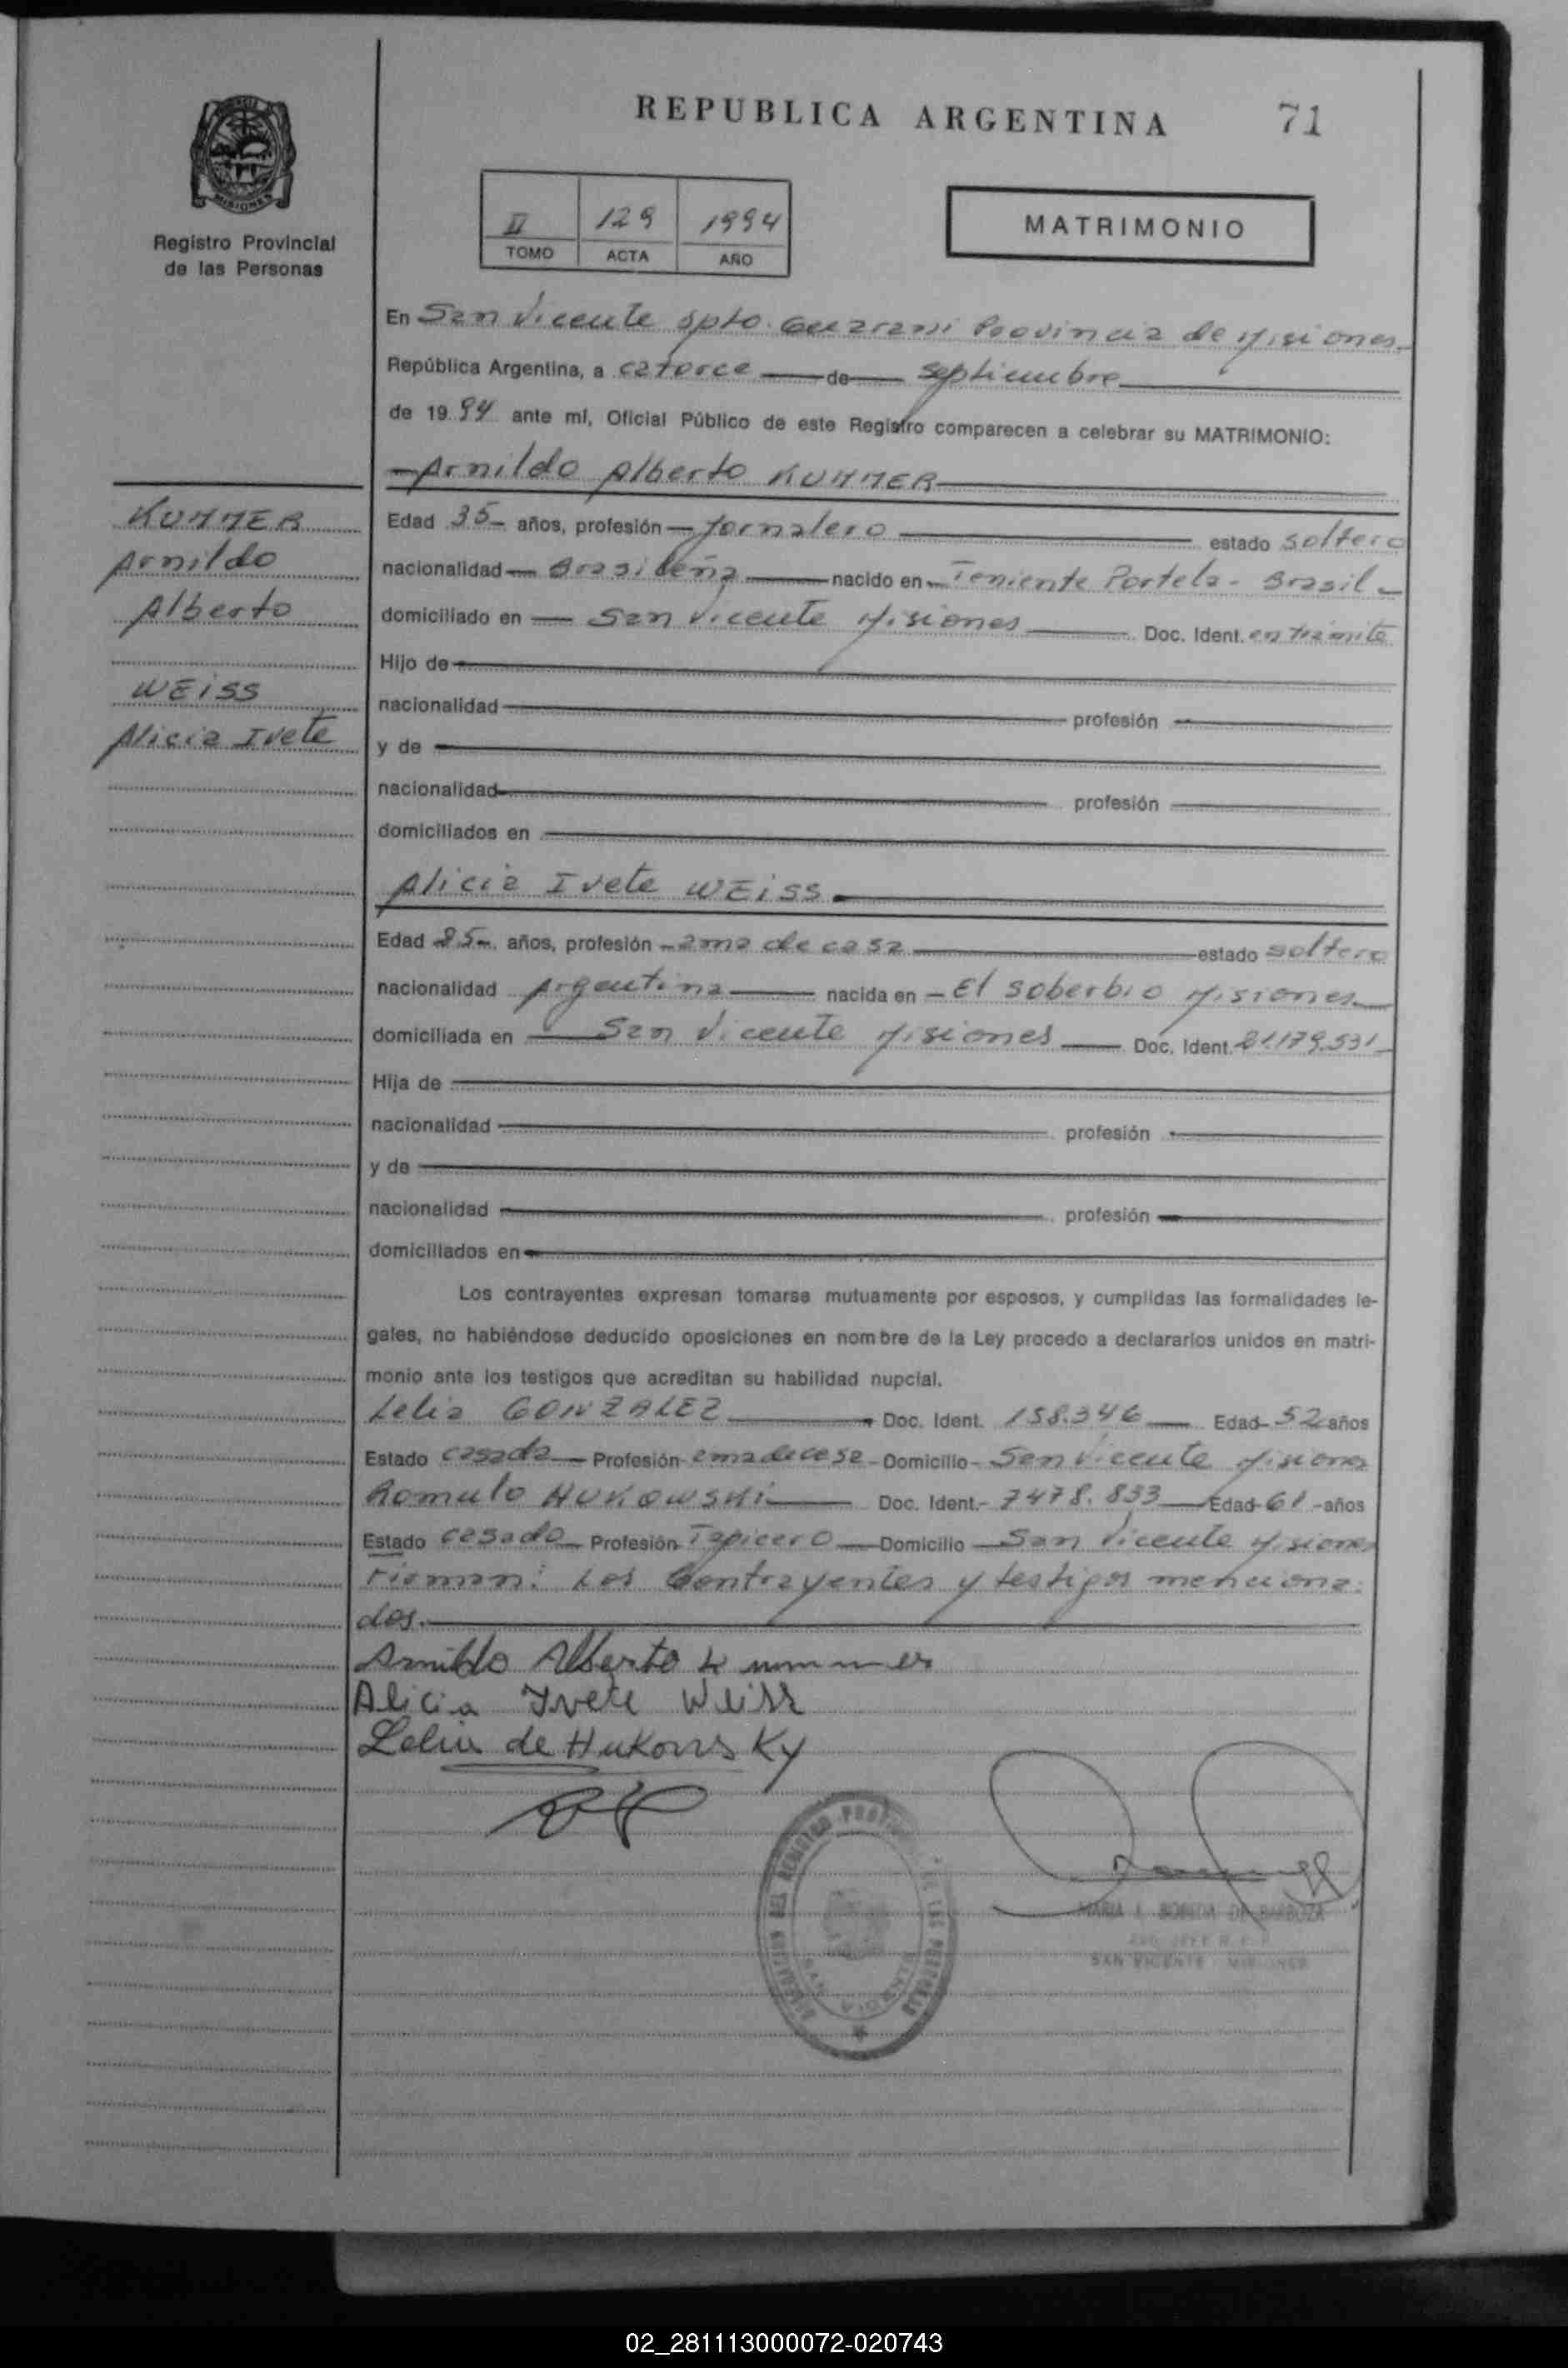 REPUBLICA ARGENTINA
71
MISIONES
Registro Provincial
de las Personas
II 129 1994
TOMO ACTA AÑO
MATRIMONIO
En San Vicente Dpto. Guarani Provincia de Misiones
República Argentina, a catorce de septiembre
de 1994 ante mí, Oficial Público de este Registro comparecen a celebrar su MATRIMONIO:
Arnildo Alberto KUMMER
KUMMER
Arnildo
Alberto
WEiSS
Alicia Ivete
Edad 35 años, profesión Jornalero estado soltero
nacionalidad Brasileña nacido en Teniente Portela - Brasil
domiciliado en San Vicente Misiones Doc. Ident. en trámite
Hijo de
nacionalidad profesión
y de
nacionalidad profesión
domiciliados en
Alicia Ivete WEiSS
Edad 25 años, profesión ama de casa estado soltera
nacionalidad Argentina nacida en El Soberbio Misiones
domiciliada en San Vicente Misiones Doc. Ident. 21.179.531
Hija de
nacionalidad profesión
y de
nacionalidad profesión
domiciliados en
Los contrayentes expresan tomarse mutuamente por esposos, y cumplidas las formalidades le-
gales, no habiéndose deducido oposiciones en nombre de la Ley procedo a declararlos unidos en matri-
monio ante los testigos que acreditan su habilidad nupcial.
Lelia GONZALEZ Doc. Ident. 158.346 Edad 52 años
Estado casada Profesión ama de casa Domicilio San Vicente Misiones
Romulo HUKOWSKi Doc. Ident. 7478.833 Edad 61 años
Estado casado Profesión Tapicero Domicilio San Vicente Misiones
Firman: Los Contrayentes y testigos menciona-
dos.
Arnildo Alberto Kummer
Alicia Ivete Weiss
Lelia de Hukowsky
DEL REGISTRO DE LAS PERSONAS
MARIA BOBEDA DE BARBOZA
SAN VICENTE MISIONES
02_281113000072-020743